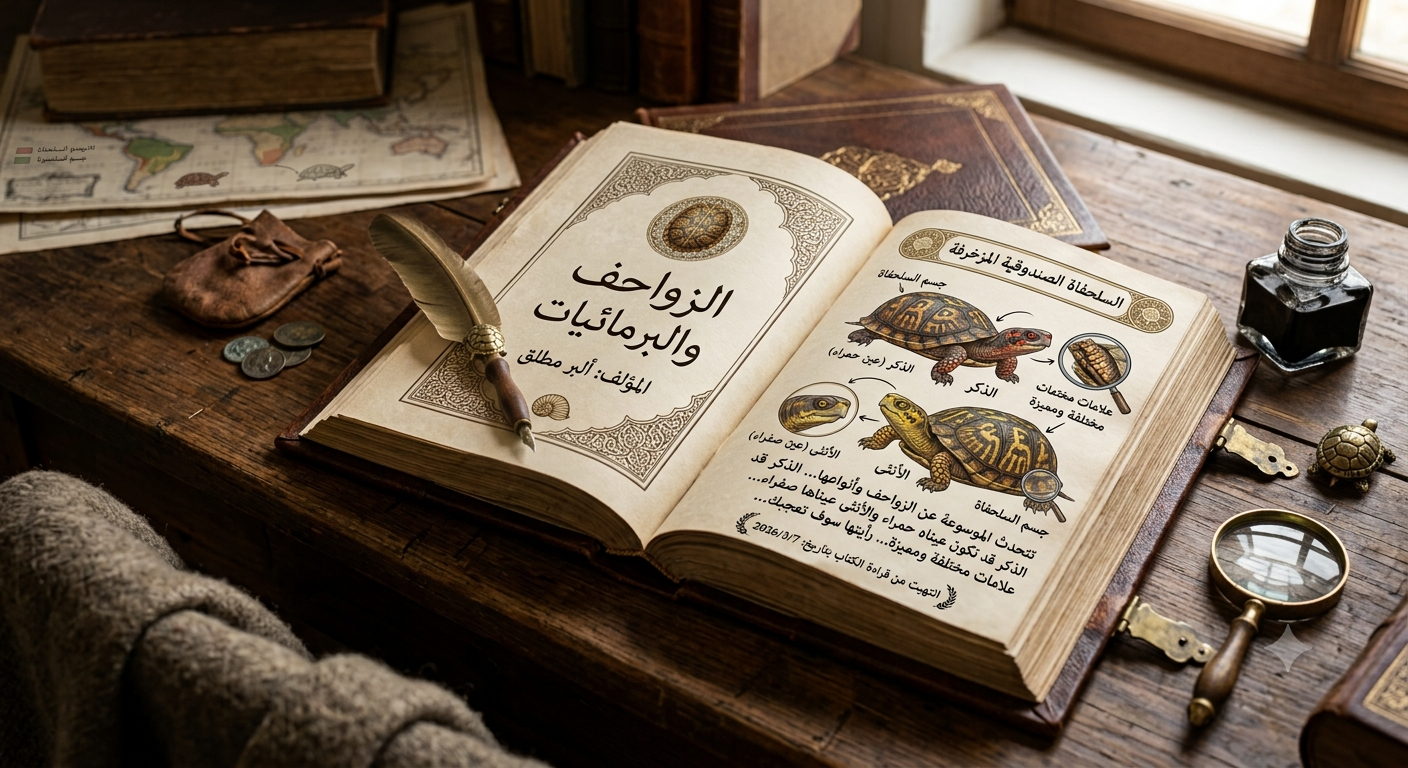 الزواحف
والبرمائيات
المؤلف: ألبر مطلق
السلحفاة الصندوقية المزخرفة
جسم السلحفاة
الذكر (عين حمراء)
الذكر
علامات
مختلفة ومميزة
الأنثى (عين صفراء)
الأنثى
جسم السلحفاة
تتحدث الموسوعة عن الزواحف وأنواعها... الذكر قد
الذكر قد تكون عيناه حمراء والأنثى عيناها صفراء...
علامات مختلفة ومميزة... رأيتها سوف تعجبك...
انتهيت من قراءة الكتاب بتاريخ: